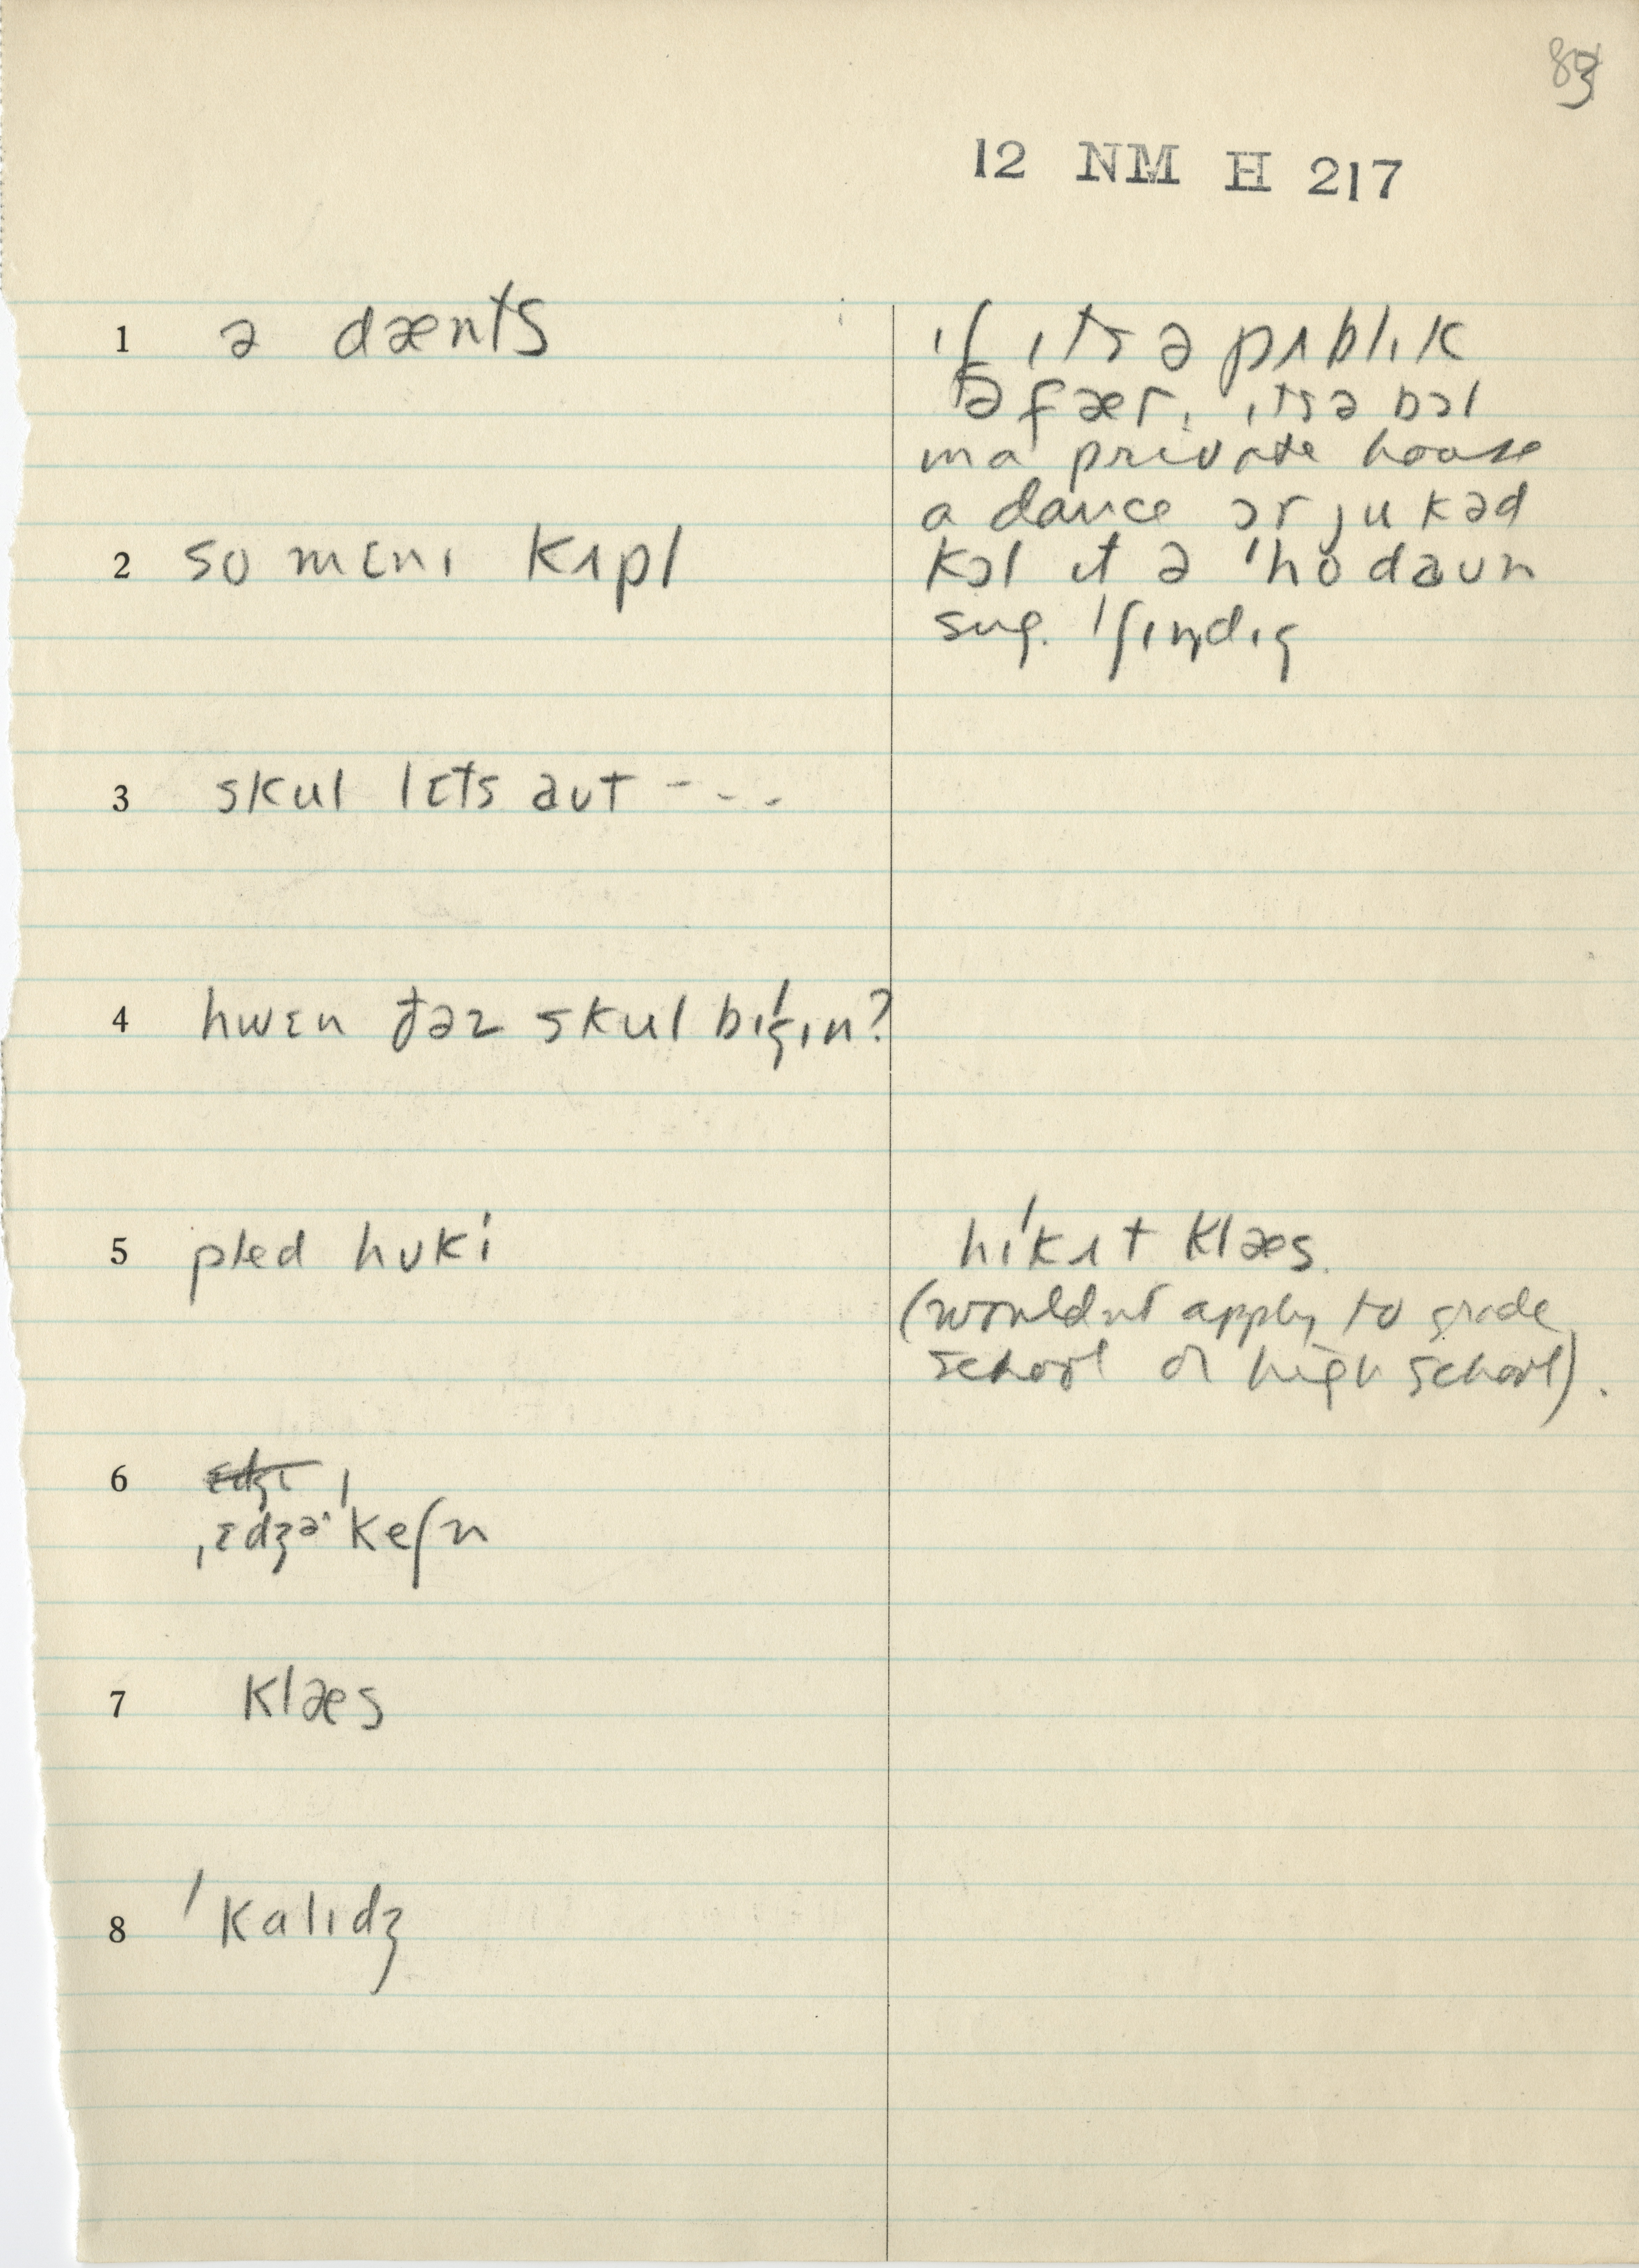 83
12 NM H 217
1 ə dænts
ɪf ɪts ə pʌblɪk
əfær, ɪts ə bɔl
in a private house
a dance ɔr ju kəd
kɔl it ə ˈhodaun
sug. ˈʃɪndɪg
2 so mɛnɪ kʌpl
3 skul lɛts aʊt - - -
4 hwɛn dəz skul bɪˈgɪn?
5 pled hʊki
hiˈkʌt klæs.
(wouldnt apply to grade
school or high school).
6 ɛdʒɪ
ˌɛdʒəˈkeʃn
7 klæs
8 ˈkalɪdʒ